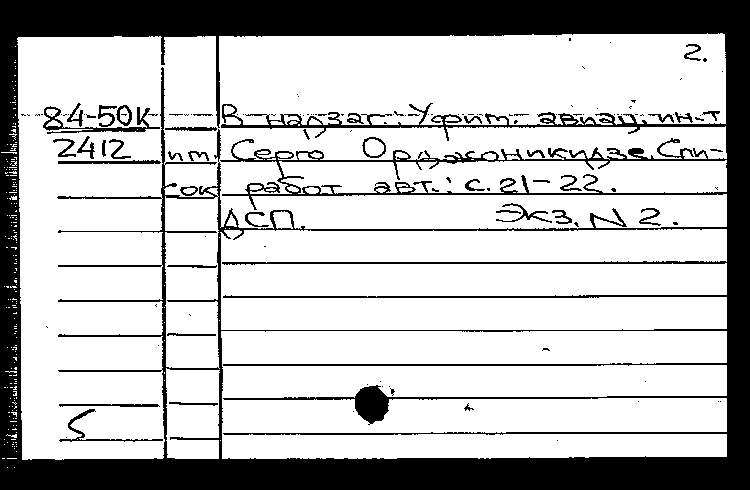 2.
84-50К В надзаг.: Уфим. авиац. ин-т
2412 им. Серго Орджоникидзе. Спи-
сок работ авт.: с. 21-22.
ДСП. Экз. N 2.
5